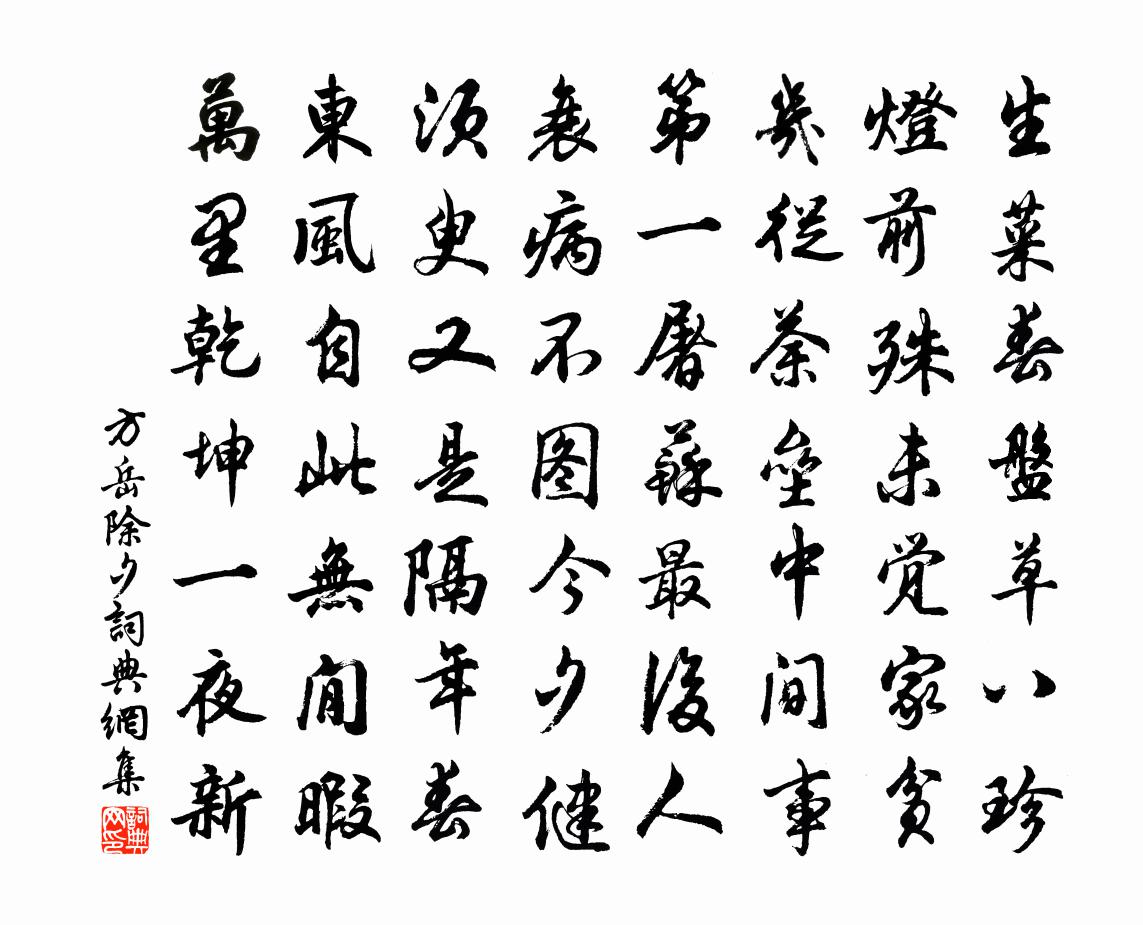 生菜春盤草八珍
燈前殊未覚家貧
幾從荼壘中间事
第一屠蘇最後人
衰病不图今夕健
須臾又是隔年春
東風自此無閒暇
萬里乾坤一夜新
方岳除夕詞典網集
詞典网印